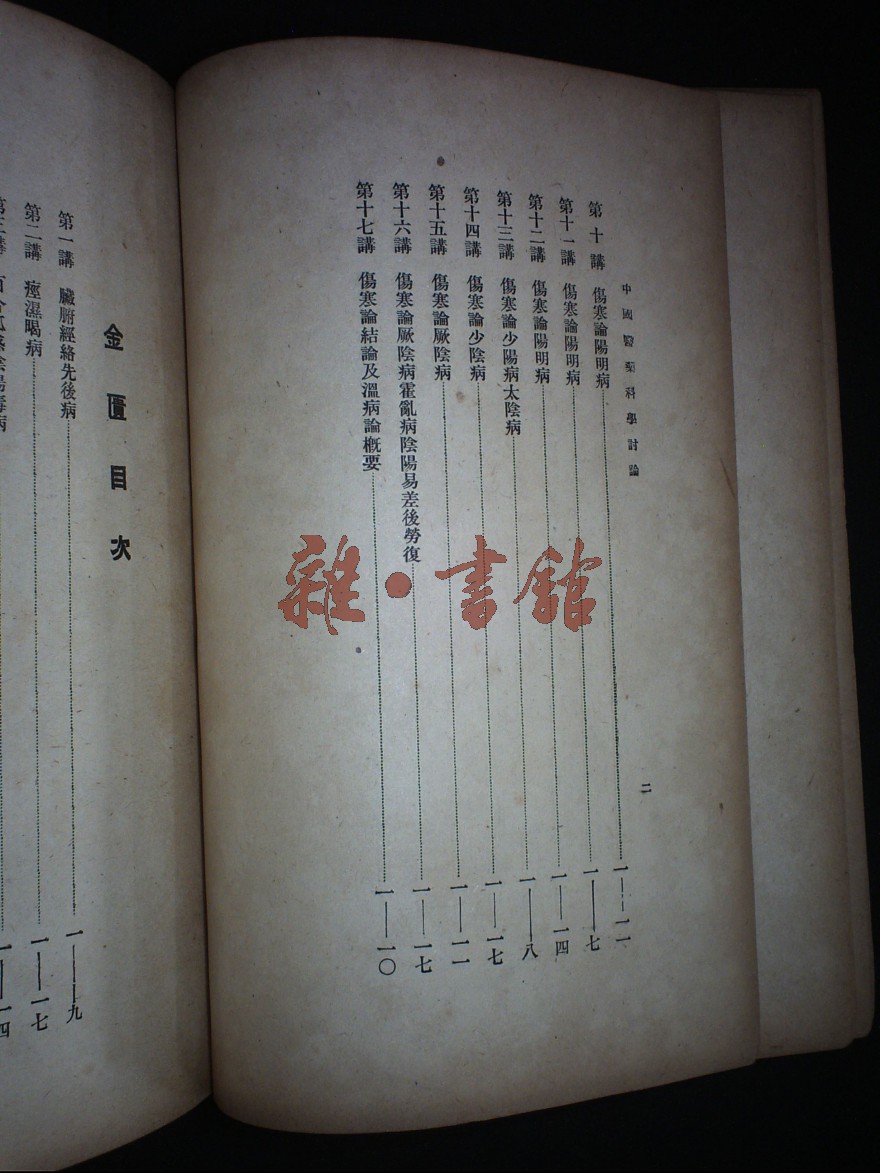 中國醫藥科學討論
二
第十講 傷寒論陽明病 一——一一
第十一講 傷寒論陽明病 一——七
第十二講 傷寒論陽明病 一——一四
第十三講 傷寒論少陽病太陰病 一——八
第十四講 傷寒論少陰病 一——一七
第十五講 傷寒論厥陰病 一——一一
第十六講 傷寒論厥陰病霍亂病陰陽易差後勞復 一——一七
第十七講 傷寒論結論及溫病論概要 一——一〇
金匱目次
第一講 臟腑經絡先後病 一——九
第二講 痙濕暍病 一——一七
陰陽毒病 一——一四
雜·書館